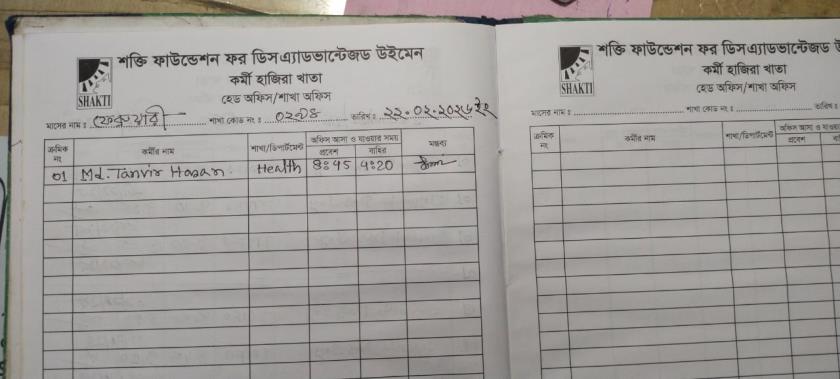 শক্তি ফাউন্ডেশন ফর ডিসএ্যাডভান্টেজড উইমেন
কর্মী হাজিরা খাতা
হেড অফিস/শাখা অফিস
SHAKTI
মাসের নাম : ফেব্রুয়ারী শাখা কোড নং : তারিখ : ২২.০২.২০২৬ ইং
ক্রমিক নং কর্মীর নাম শাখা/ডিপার্টমেন্ট অফিস আসা ও যাওয়ার সময় মন্তব্য
প্রবেশ বাহির
01 Md. Tanvir Hasan Health 8:45 4:20
শক্তি ফাউন্ডেশন ফর ডিসএ্যাডভান্টেজড উ
কর্মী হাজিরা খাতা
হেড অফিস/শাখা অফিস
SHAKTI
মাসের নাম : শাখা কোড নং : তারিখ :
ক্রমিক নং কর্মীর নাম শাখা/ডিপার্টমেন্ট অফিস আসা ও যাওয়ার
প্রবেশ বাহির